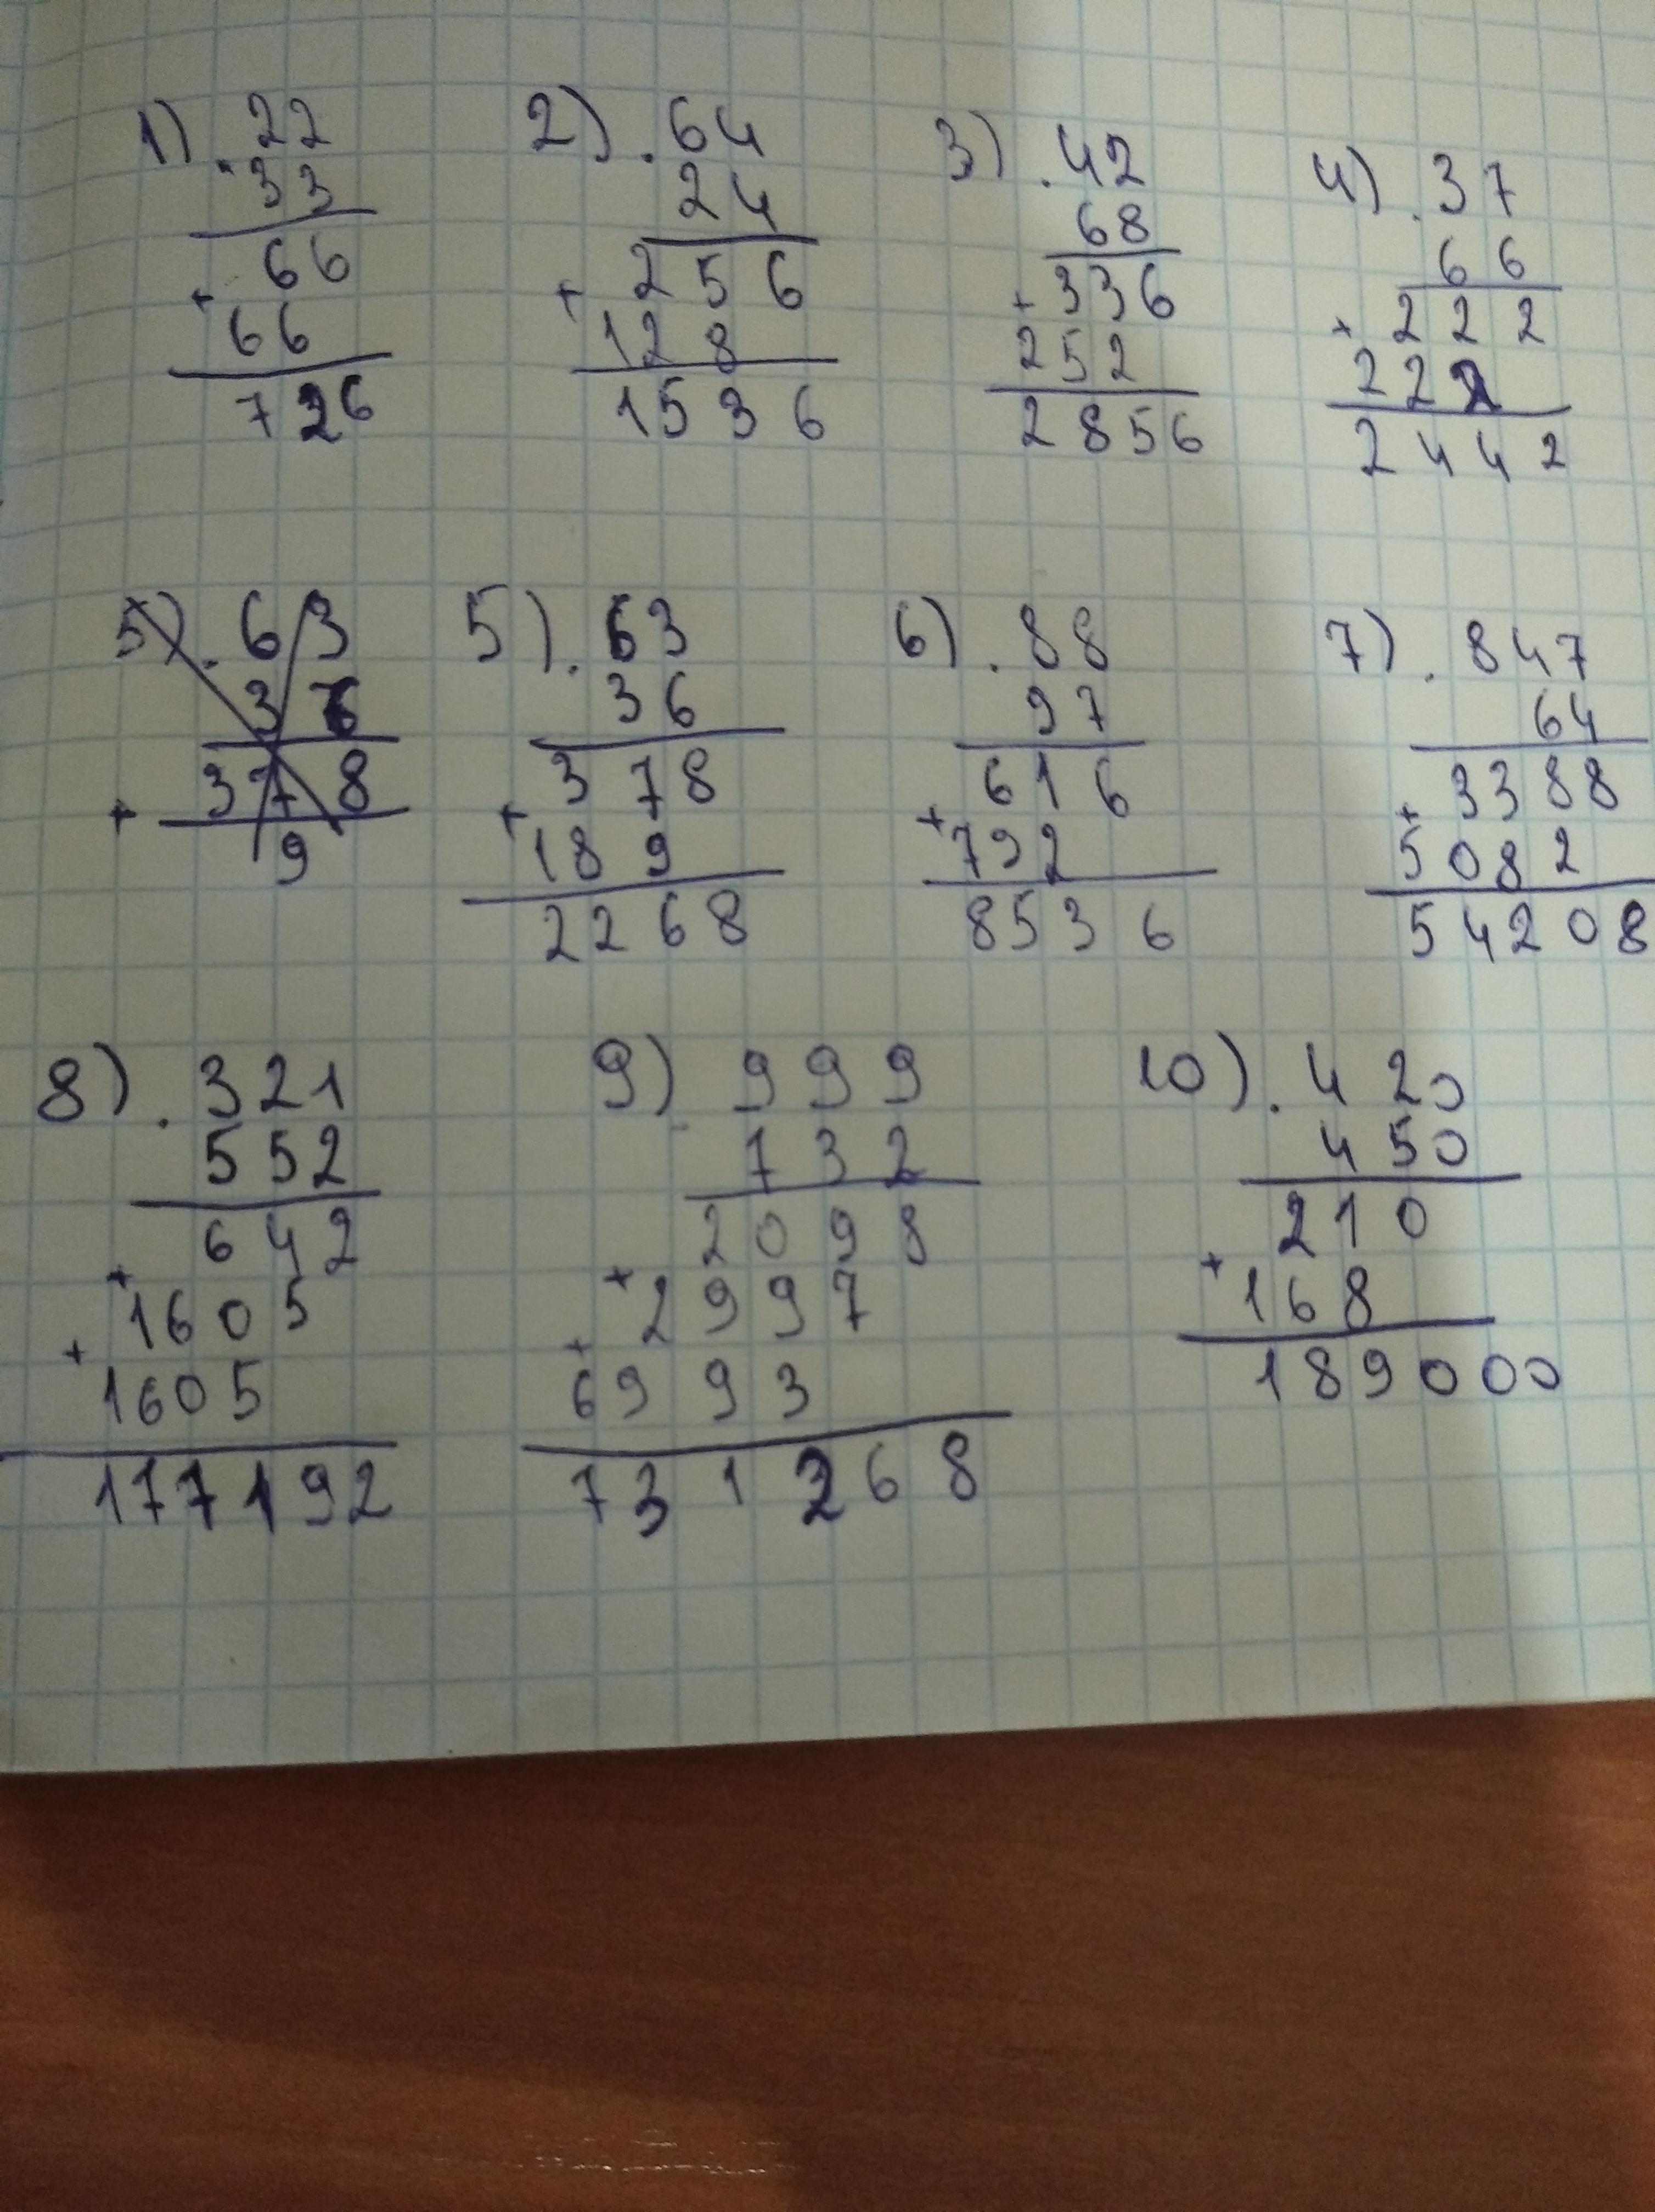 1) . 22
33
66
+ 66
726
2) . 64
24
256
+ 128
1536
3) . 42
68
+ 336
252
2856
4) . 37
66
+ 222
222
2442
5) . 63
36
+ 378
9
5) . 63
36
378
+ 189
2268
6) . 88
97
616
+ 792
8536
7) . 847
64
+ 3388
5082
54208
8) . 321
552
642
+ 1605
+ 1605
177192
9) . 999
732
2098
+ 2997
+ 6993
731268
10) . 420
450
210
+ 168
189000